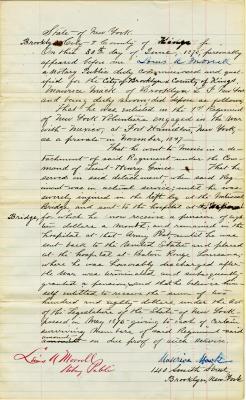 State of New York
Brooklyn City & County of Kings ss
On this 30th day of June 1896 personally
appeared before me Louis A Morrell
a Notary Public duly commissioned and qual-
ified for the City of Brooklyn & County of Kings,
Maurice of Brooklyn E. D. New York
and being duly sworn deposes as follows
That he was enlisted in the 1st Regiment
of New York Volunteers engaged in the War
with Mexico, at Fort Hamilton, New York,
as a private in November, 1847.
That he went to Mexico in a de-
tachment of said Regiment under the Com-
mand of Lieut Henry That he
served in said detachment when said Reg-
iment was in actual service, until he was
severely injured in the left leg at the National
Bridge and sent to the hospital at the
Bridge, for which he now receives a pension of eight
dollars a month, he remained in the
hospital at until he was
sent back to the United States and placed
at the hospital at Baton Rouge Louisiana
where he was honorably discharged after
the war was terminated and subsequently
granted a pension, and that he believes him-
self entitled to receive the sum of two
hundred and eighty dollars under the Act
of the Legislature of the State of New York
passed in May 1896 giving to each of certain
surviving members of said Regiment said
amount on due proof of such service.
Louis A Morrell
Notary Public
Maurice
Smith Street
Brooklyn New York